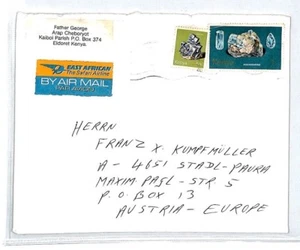 Father George
Arap Cheboryot
Kaiboi Parish P.O. Box 374
Eldoret Kenya.
EAST AFRICAN
The Safari Airline
BY AIR MAIL
PAR AVION
HERRN
FRANZ X. KUMPFMÜLLER
A - 4651 STADL-PAURA
MAXIM PAGL - STR 5
P.O BOX 13
AUSTRIA - EUROPE